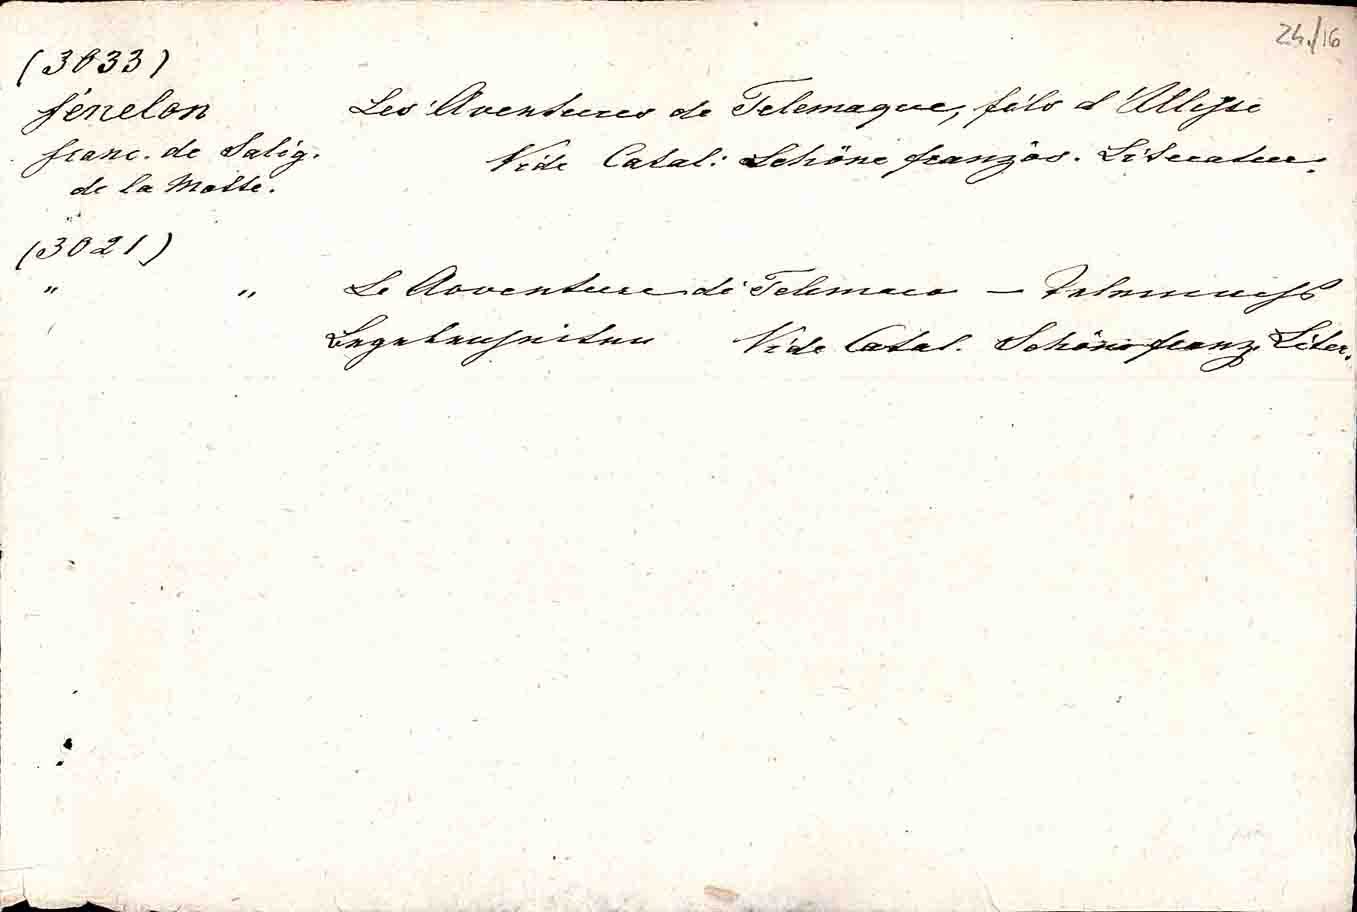 24./16
(3033)
Fénelon Les Aventures de Telemaque, fils d'Ulysse
franc. de Salig. Vide Catal: Schöne französ. Literatur.
de la Motte.
(3021)
" " Le Avventure di Telemaco — Telemachs
Begebenheiten Vide Catal. Schöne franz. Liter.